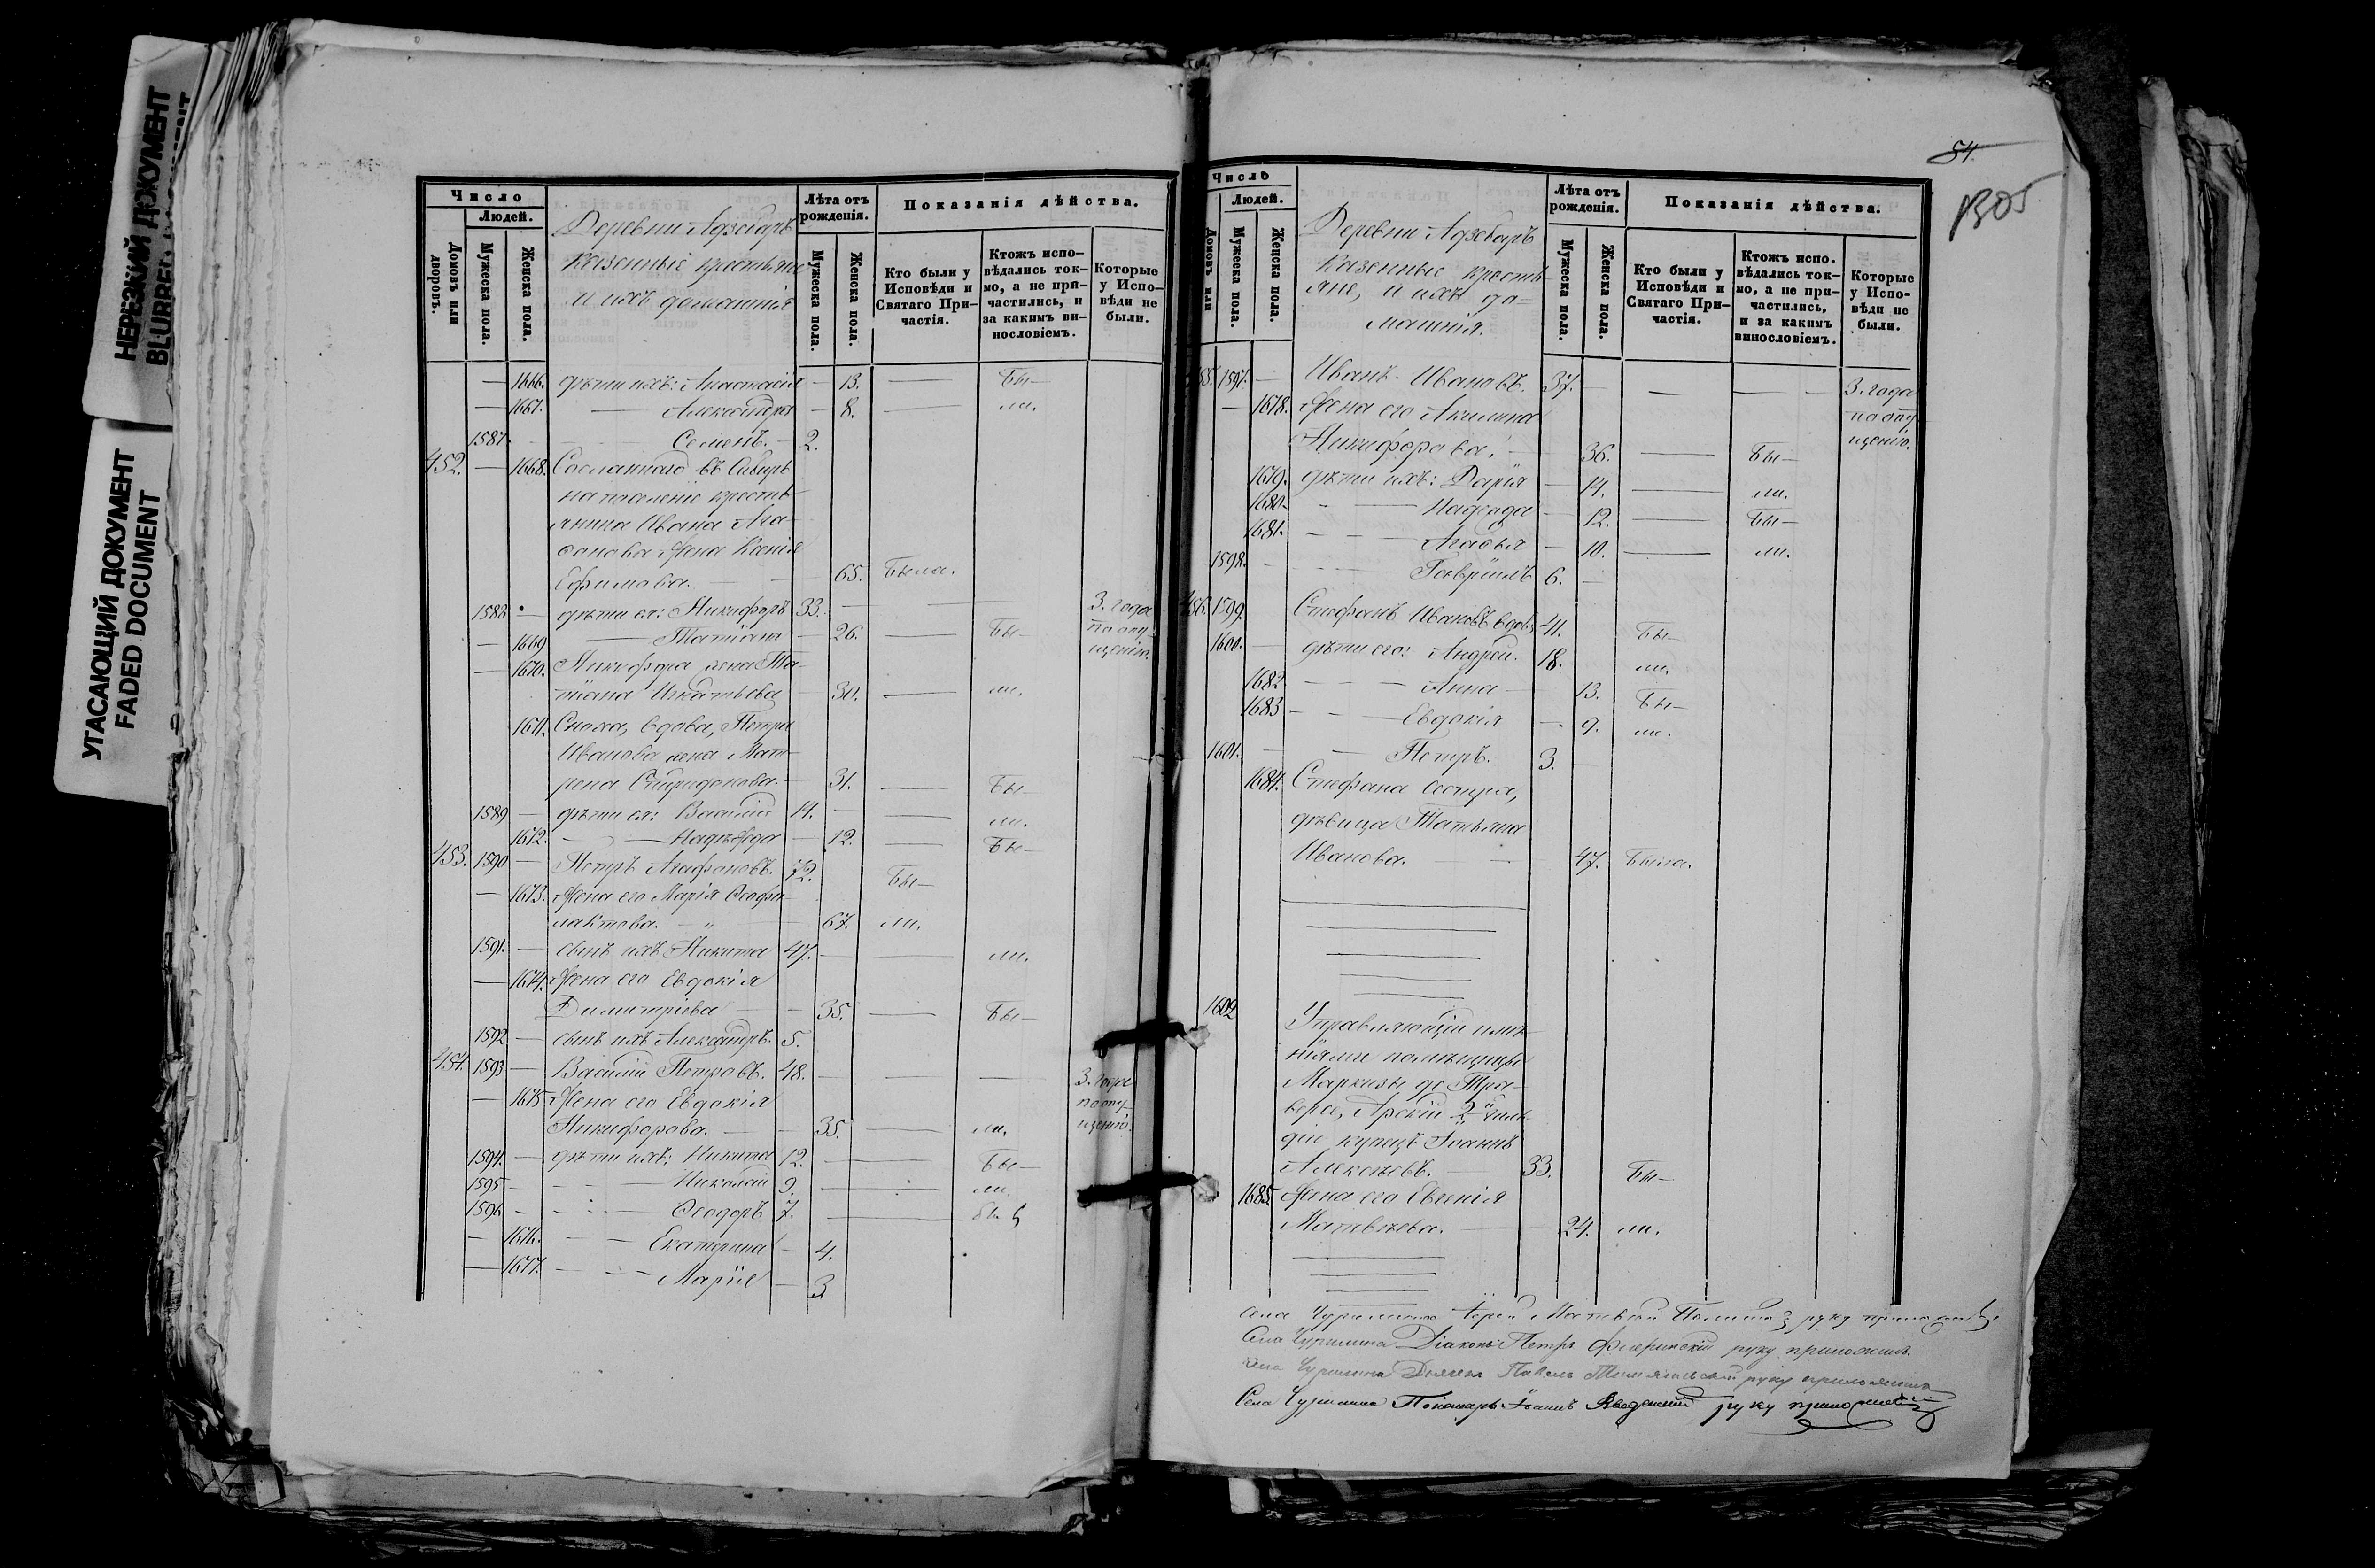 НЕРЕЗКИЙ ДОКУМЕНТ
BLURRED
УГАСАЮЩИЙ ДОКУМЕНТ
FADED DOCUMENT
Число
Людей.
Домовъ или дворовъ.
Мужеска пола.
Женска пола.
Деревни
казенные крестьяне
и ихъ домашнія
Лѣта отъ рожденія.
Мужеска пола.
Женска пола.
Показанія дѣйства.
Кто были у Исповѣди и Святаго Причастія.
Ктожъ исповѣдались токмо, а не причастились, и за какимъ винословіемъ.
Которые у Исповѣди не были.
— 1666. дѣти ихъ: Анастасія — 13. — Бы—
— 1667. — Александра — 8. — ли.
1587. — Семенъ. — 2.
452. — 1668. Сосланнаго въ Сибирь
на поселеніе кресть-
янина Ивана Ага-
фонова жена Ксенія
Ефимова. — 65. Была.
1588 — дѣти ея: Никифоръ 33. — 3. года
— 1669 — Татіана — 26. — Бы— по опу-
— 1670. Никифора жена Та- щенію.
тіана Игнатьева 30. — ли.
1671. Сноха, вдова, Петра
Иванова жена Мат-
рена Спиридонова. — 31. — Бы—
1589 — дѣти ея: Василій 14. — ли.
1672. — Надежда — 12. — Бы—
453. 1590 — Петръ Агафоновъ. 72. Бы—
— 1673. Жена его Марія Феофи-
лактова. — 67. ли.
1591. — сынъ ихъ Никита 47. — ли.
— 1674. Жена его Евдокія
Димитріева — 35. — Бы—
1592 — сынъ ихъ Александръ. 5.
454. 1593 — Василій Петровъ. 48. — 3. года
— 1675 Жена его Евдокія по опу-
Никифорова. — 35. — ли. щенію.
1594. — дѣти ихъ: Никита 12. — Бы—
1595 — Николай 9. — ли.
1596 — Ѳеодоръ 7.
— 1676. — Екатерина — 4.
— 1677. — Марія — 3
84.
1305
Число
Людей.
Домовъ или
Мужеска пола.
Женска пола.
Деревни
Казенные кресть-
яне, и ихъ до-
машнія.
Лѣта отъ рожденія.
Мужеска пола.
Женска пола.
Показанія дѣйства.
Кто были у Исповѣди и Святаго Причастія.
Ктожъ испо. вѣдались токмо, а не причастились, и за какимъ винословіемъ.
Которые у Исповѣди не были.
455. 1597. — Иванъ Ивановъ. 37. — 3. года
— 1678. Жена его Акилина по опу-
Никифорова. — 36. — Бы— щенію.
1679. дѣти ихъ: Дарія — 14. — ли.
1680. — Надежда — 12. — Бы—
1681. — Агафья — 10. — ли.
1598. — Гавріилъ 6. —
456. 1599. Стефанъ Ивановъ вдовъ 41. Бы—
1600. — дѣти его: Андрей. 18. ли.
1682 — Анна — 13. Бы—
1683 — Евдокія — 9. ли.
1601. — Петръ. 3. —
1684. Стефана сестра,
дѣвица Татьяна
Иванова. — 47. Была.
1602 Управляющій имѣ-
ніями помѣщицы
Маркизы де Тра-
версе, Арскій 2й гиль-
діи купецъ Іоаннъ
Алексѣевъ. — 33. Бы—
1685. Жена его Евгенія
Матвѣева. — 24. ли.
Села Чурилина Іерей Матвей руку приложилъ.
Села Чурилина Діаконъ Петръ руку приложилъ.
Села Чурилина Дьячекъ Павелъ руку приложилъ
Села Чурилина Пономарь Іоаннъ Введенскій руку приложилъ